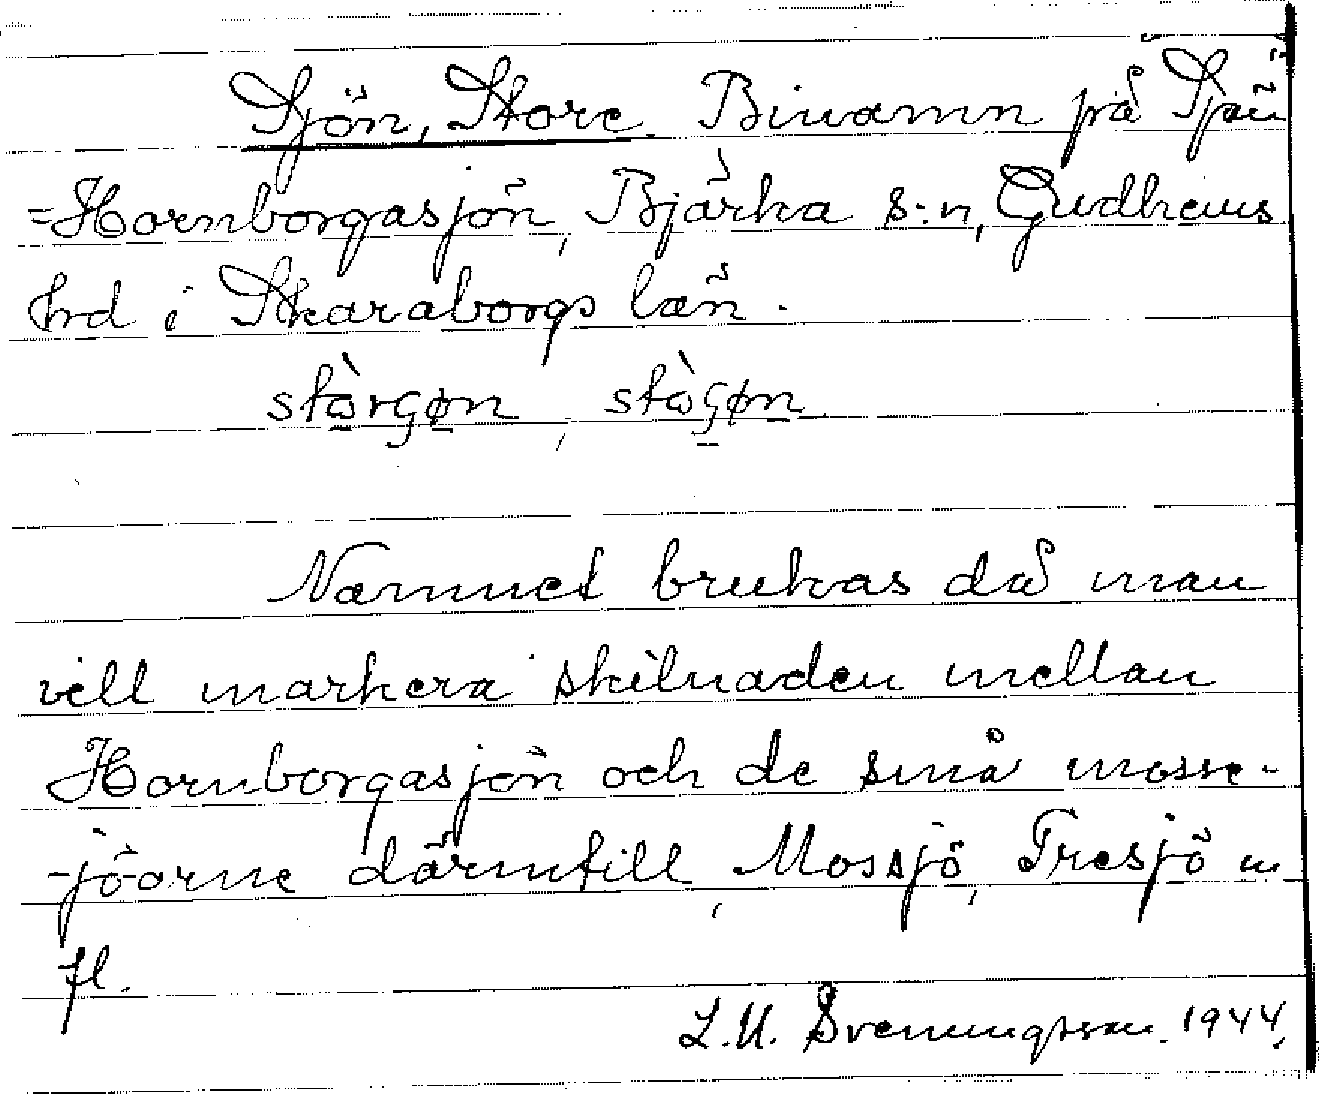 Sjön, Store. Binamn på Sjön
=Hornborgasjön, Bjärka s:n, Gudhems
hrd i Skaraborgs län.
stòrGøn, stòGøn
Namnet brukas då man
vill markera skilnaden mellan
Hornborgasjön och de små mosse-
-jöarne därintill, Mossjö, Tresjö m
fl.
L.U. Svenungsson. 1944.